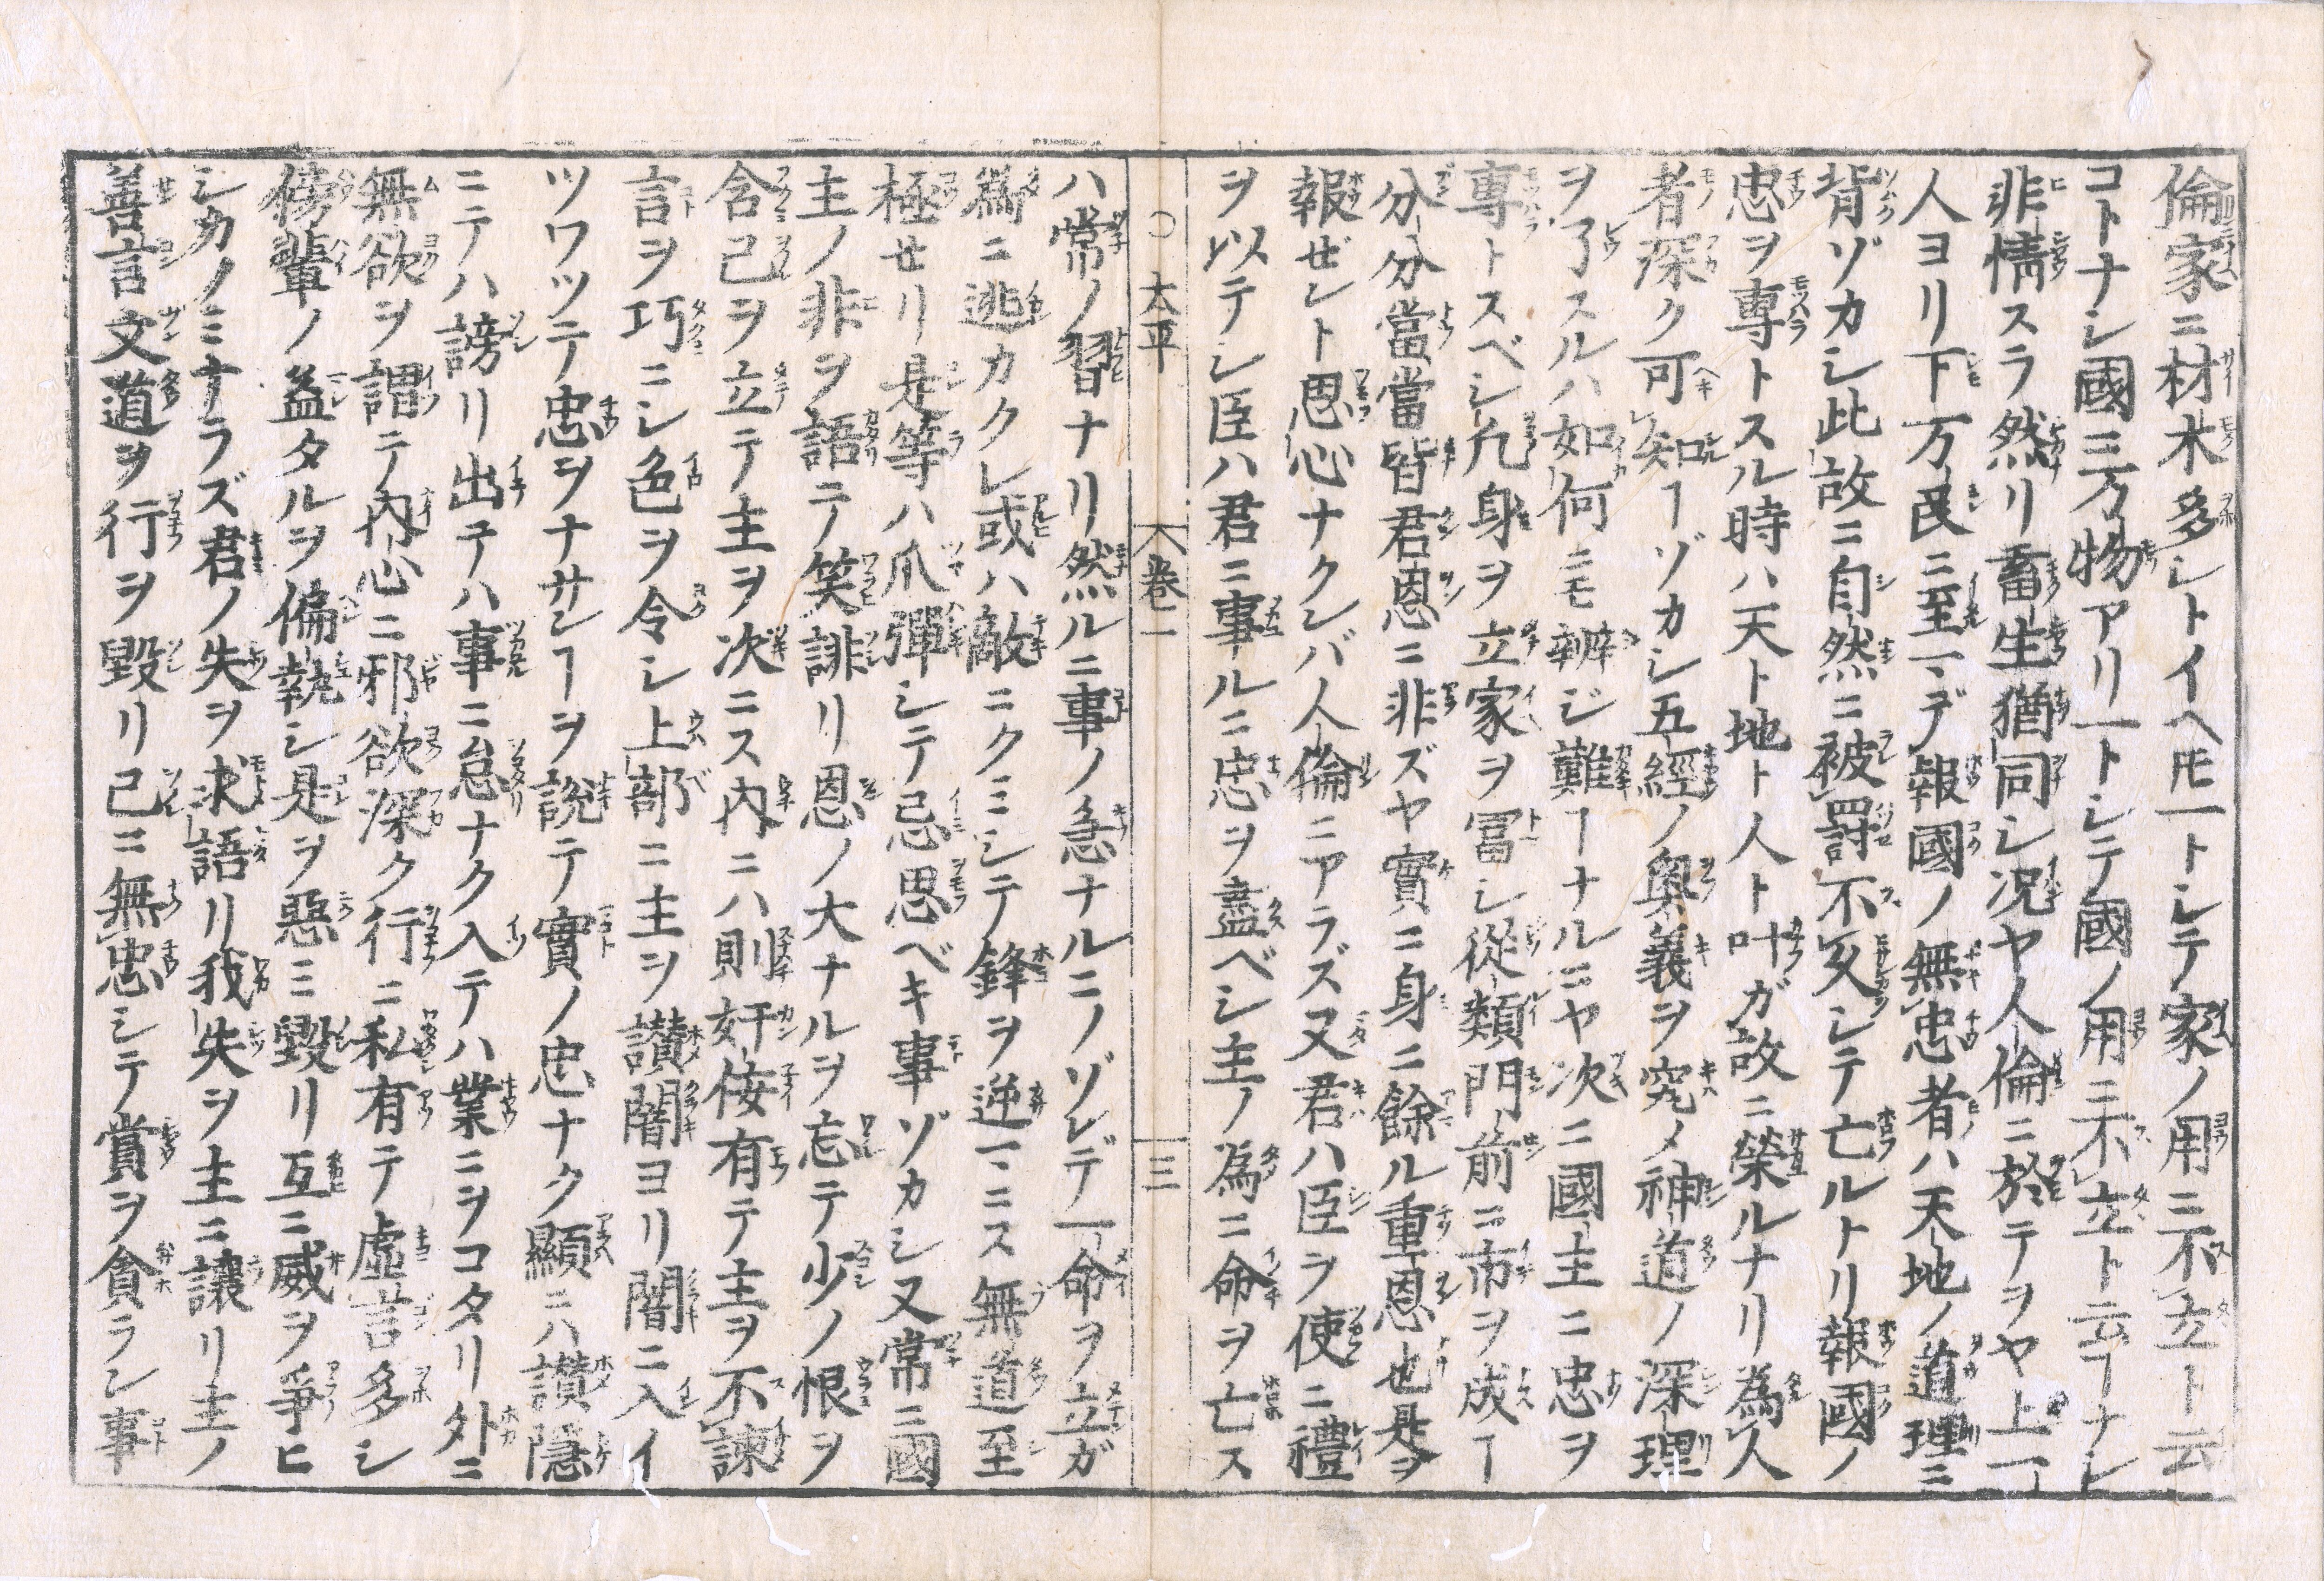 倫家ニ材木多シトイヘ𪜈一トシテ家ノ用ニ不立ト云
コトナシ國ニ万物アリ一トシテ國ノ用ニ不立ト云ヿナシ
非情スラ然リ畜生猶同シ况ヤ人倫ニ於テヲヤ上一
人ヨリ下万民ニ至マデ報國ノ無忠者ハ天地ノ道理ニ
背ゾカシ此故ニ自然ニ被罸不久シテ亡ルトリ報國ノ
忠ヲ專トスル時ハ天ト地ト人ト叶ガ故ニ榮ルナリ為人
者深ク可知ヿゾカシ五經ノ奥義ヲ究メ神道ノ深理
ヲ了スルハ如何ニモ辨ジ難ヿナルニヤ次ニ國主ニ忠ヲ
專トスベシ凢身ヲ立家ヲ冨シ從類門前ニ市ヲ成ヿ
分分當當皆君恩ニ非ズヤ實ニ身ニ餘ル重恩也是ヲ
報ゼント思心ナクンバ人倫ニアラズ又君ハ臣ヲ使ニ禮
ヲ以テシ臣ハ君ニ事ルニ忠ヲ盡ベシ主ノ為ニ命ヲ亡ス
〇太平 卷一 三
ハ常ノ習ナリ然ルニ事ノ急ナルニノゾンデ一命ヲ立ガ
為ニ逃カクレ或ハ敵ニクミシテ鋒ヲ逆マニス無道至
極せリ是等ハ爪彈シテ忌思ベキ事ゾカシ又常ニ國
主ノ非ヲ語テ笑誹リ恩ノ大ナルヲ忘テ少ノ恨ヲ
含己ヲ立テ主ヲ次ニス内ニハ則奸佞有テ主ヲ不諫
言ヲ巧ニシ色ヲ令シ上部ニ主ヲ讃闇ヨリ闇ニ入イ
ツワツテ忠ヲナサンヿヲ說テ實ノ忠ナク顯ニハ讃隠
ニテハ謗リ出テハ事ニ怠ナク入テハ業ニヲコタリ外ニ
無欲ヲ謂テ內心ニ邪欲深ク行ニ私有テ虚言多シ
傍輩ノ益タルヲ偏執シ是ヲ惡ミ毀リ互ニ威ヲ爭ヒ
シカノミナラズ君ノ失ヲ求語リ我失ヲ主ニ讓リ主ノ
善言文道ヲ行ヲ毀リ己ニ無忠シテ賞ヲ貪ラン事